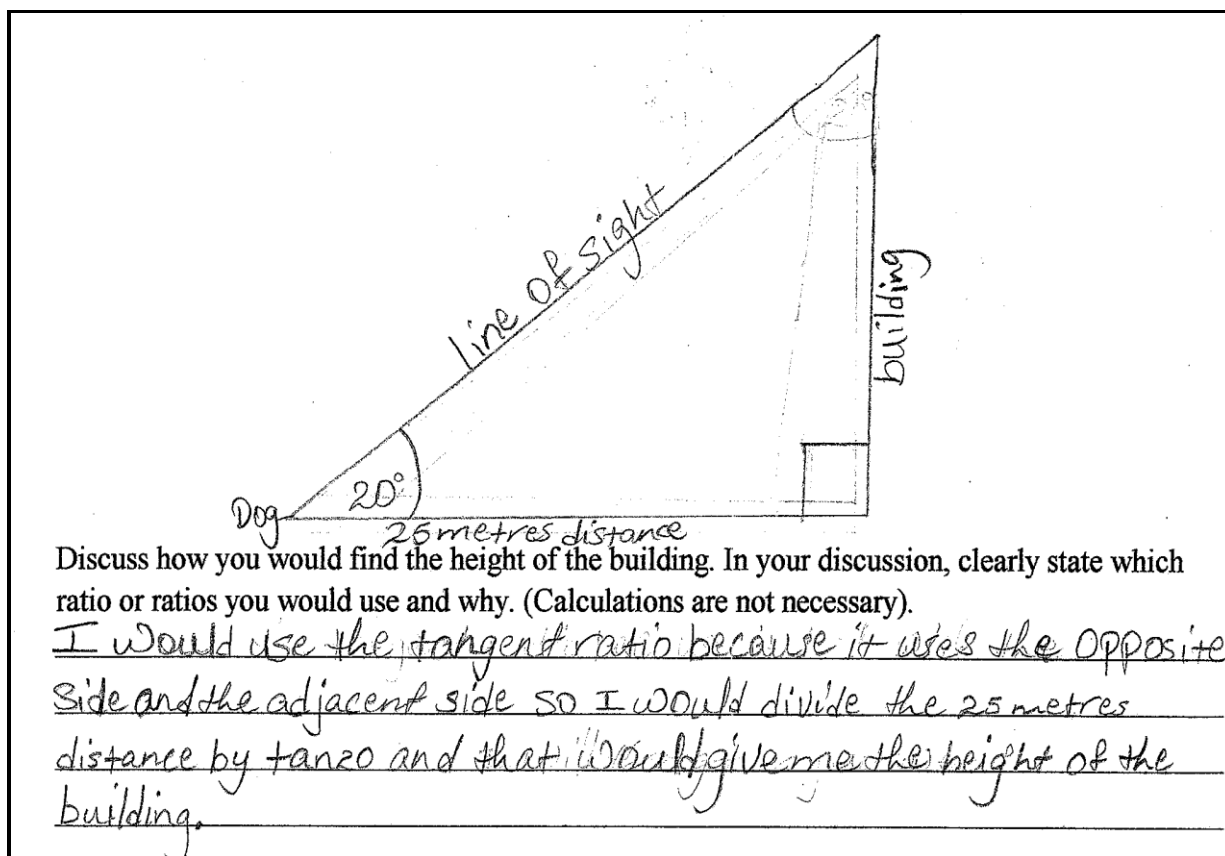 line of sight
building
Dog
20°
25 metres distance
Discuss how you would find the height of the building. In your discussion, clearly state which
ratio or ratios you would use and why. (Calculations are not necessary).
I would use the tangent ratio because it uses the opposite
side and the adjacent side so I would divide the 25 metres
distance by tan20 and that would give me the height of the
building.